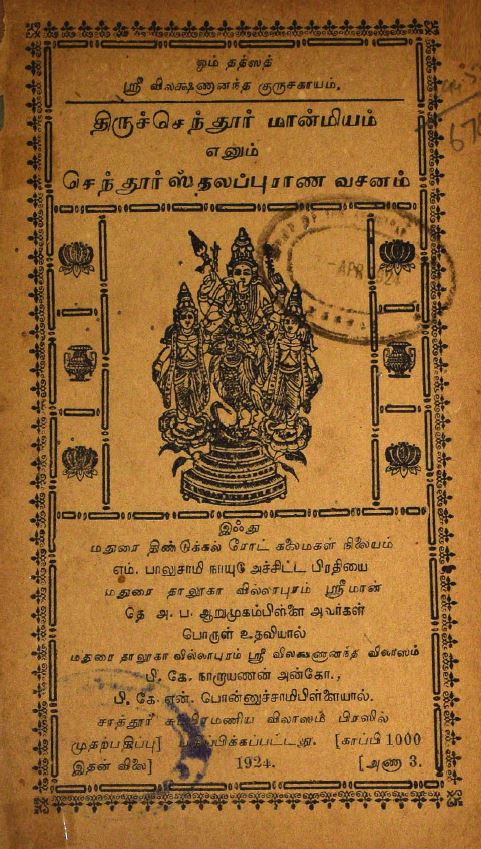 ஓம் தத்ஸத்
ஸ்ரீ விலக்ஷணானந்த குருசகாயம்.
திருச்செந்தூர் மான்மியம்
எனும்
செந்தூர்ஸ்தலப்புராண வசனம்
-APR 1924
இஃது
மதுரை திண்டுக்கல் ரோட் கலைமகள் நிலையம்
எம். பாலுசாமி நாயுடு அச்சிட்ட பிரதியை
மதுரை தாலூகா வில்லாபுரம் ஸ்ரீமான்
தெ அ. ப. ஆறுமுகம்பிள்ளை அவர்கள்
பொருள் உதவியால்
மதுரை தாலூகா வில்லாபுரம் ஸ்ரீ விலக்ஷணானந்த விலாஸம்
பி. கே. நாராயணன் அன்கோ.,
பி. கே. என். பொன்னுச்சாமிபிள்ளையால்.
சாத்தூர் சுப்பிரமணிய விலாஸம் பிரஸில்
முதற்பதிப்பு] பதிப்பிக்கப்பட்டது. [காப்பி 1000
இதன் விலை] 1924. [அணா 3.